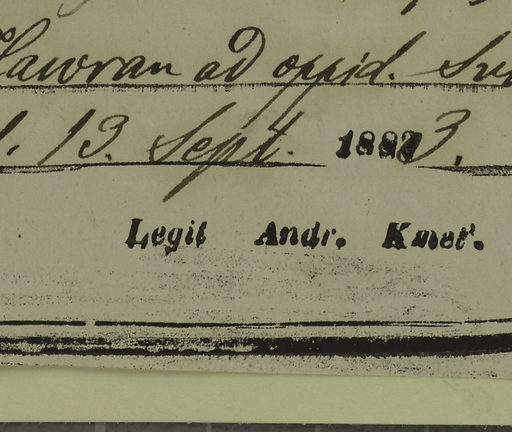 Hawran ad oppid.
1. 13. Sept. 1883.
Legit Andr. Kmeť.